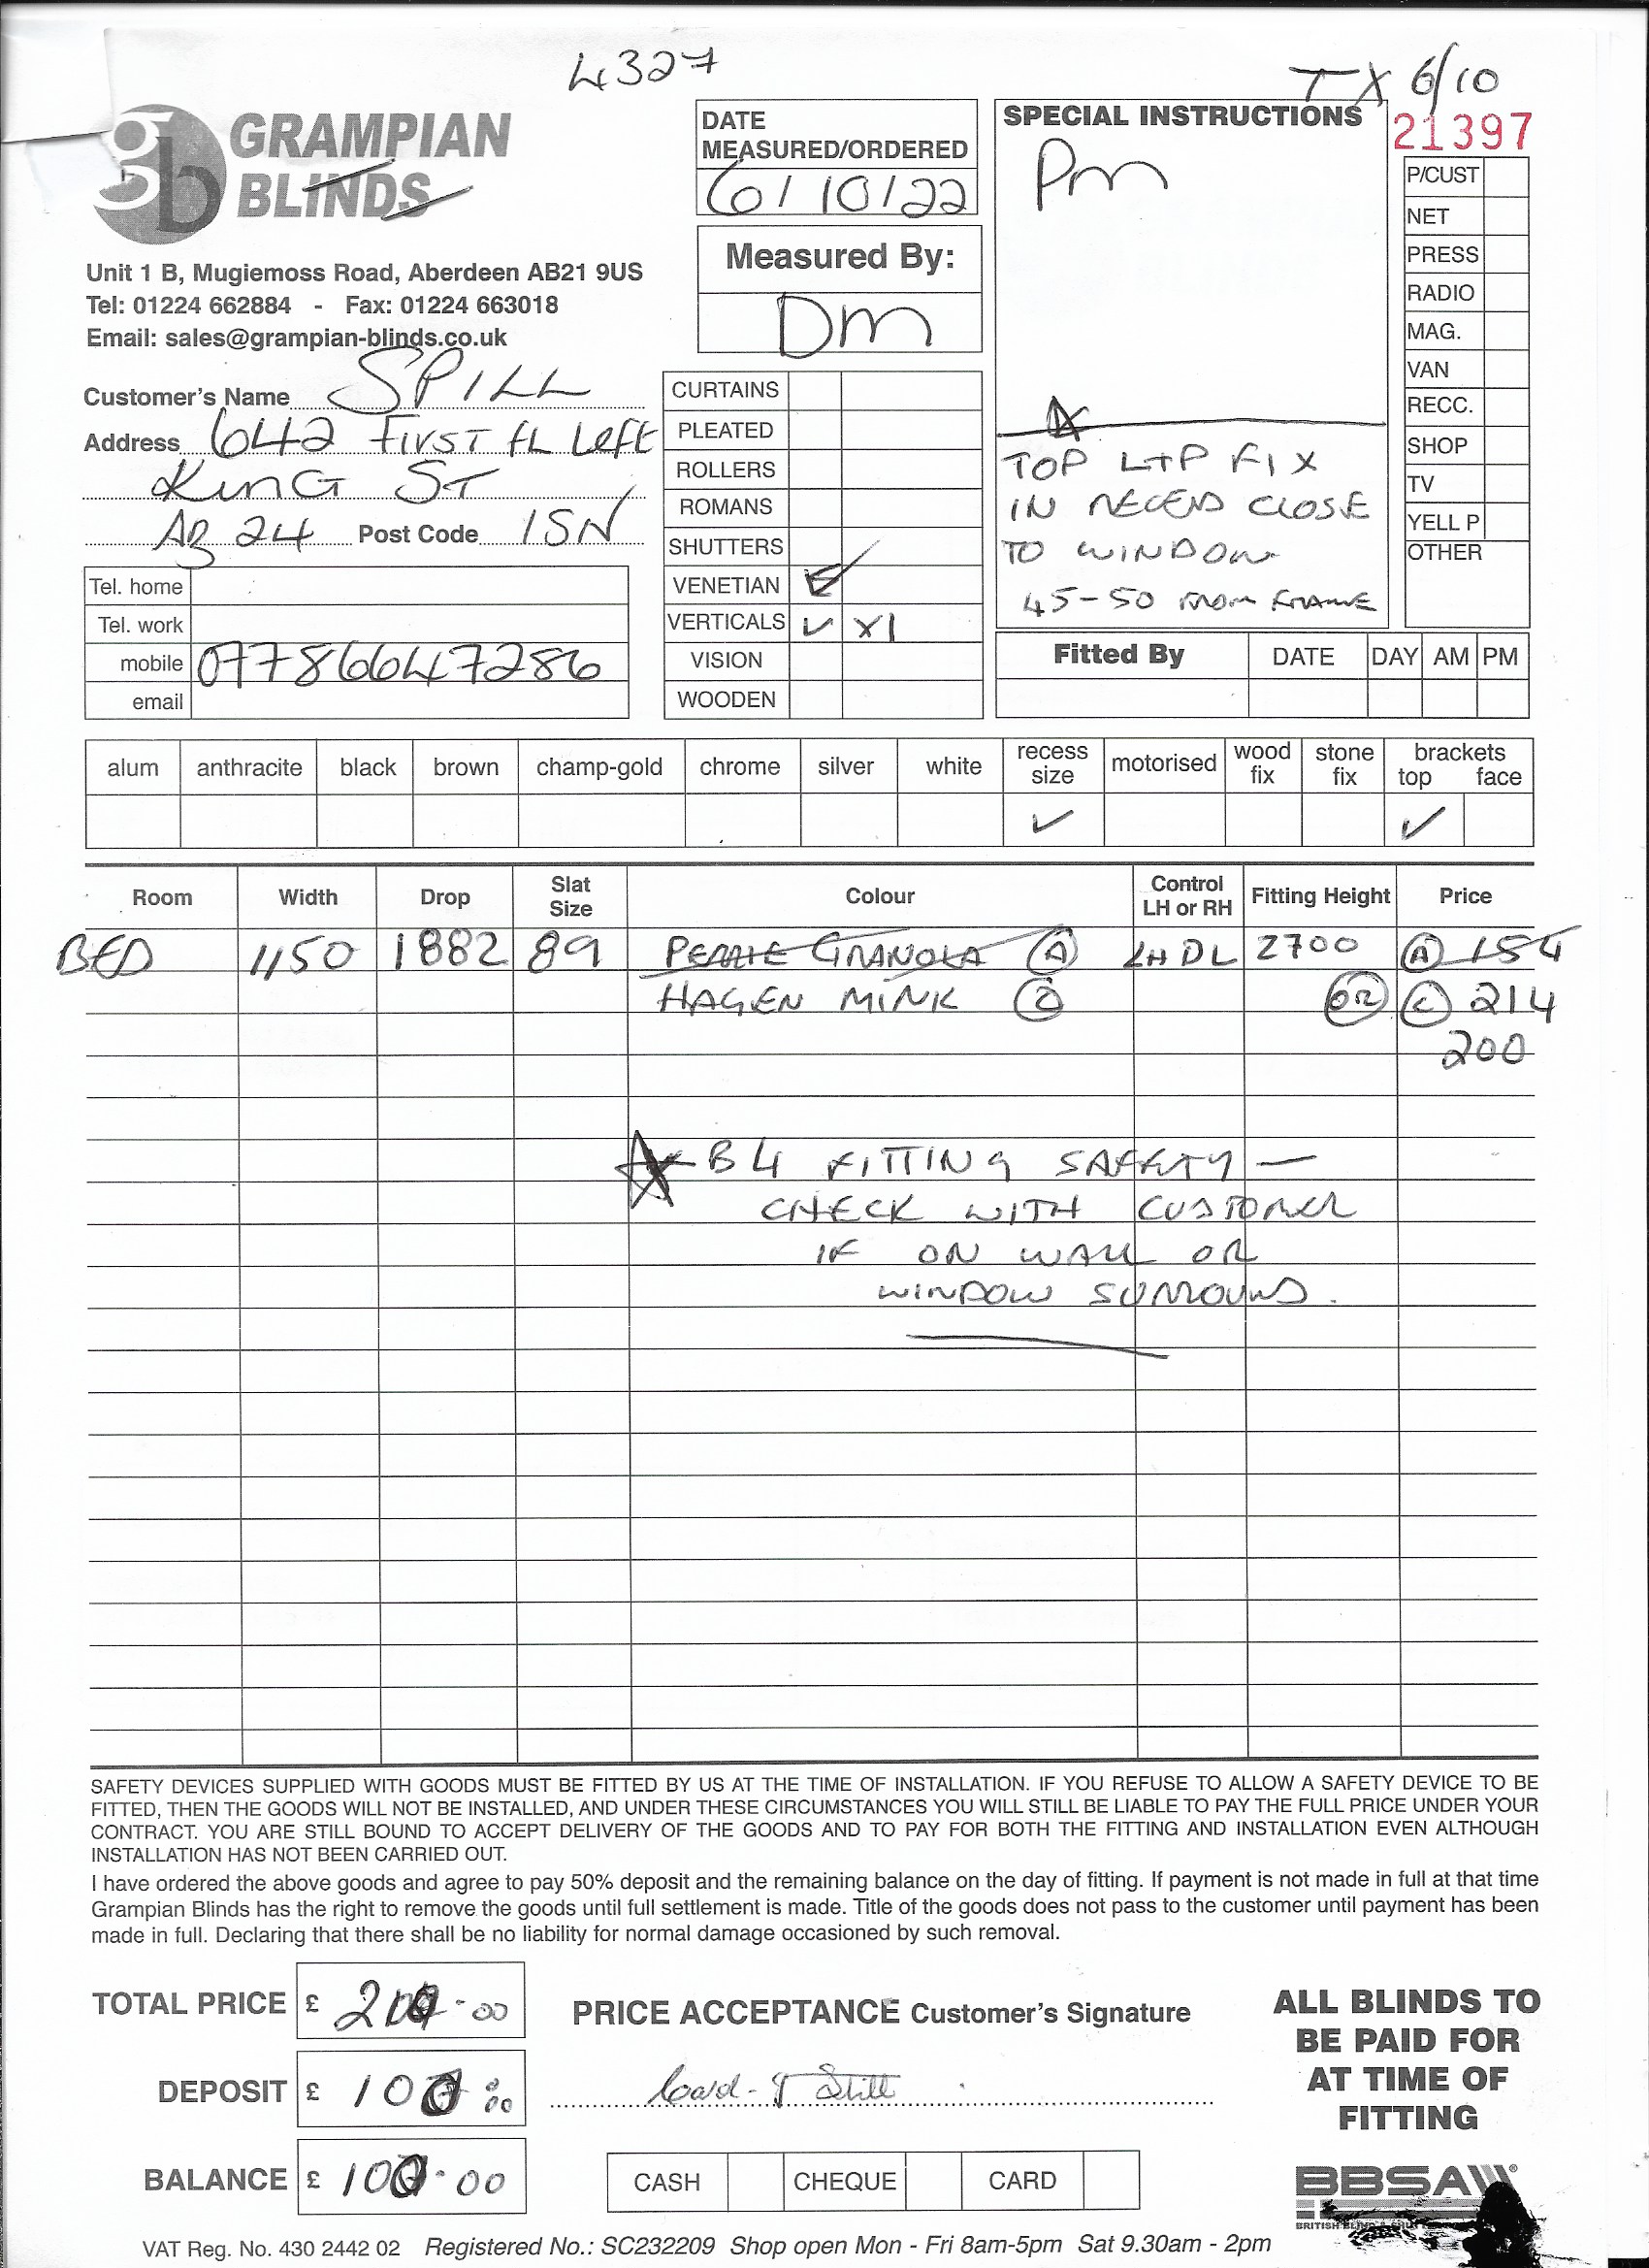 4327
TX 6/10
GRAMPIAN
BLINDS
Unit 1 B, Mugiemoss Road, Aberdeen AB21 9US
Tel: 01224 662884 - Fax: 01224 663018
Email: sales@grampian-blinds.co.uk
Customer's Name SPILL
Address 642 FIRST FL Left
KING ST
AB 24 Post Code 1SN
Tel. home
Tel. work
mobile 07786647286
email
DATE
MEASURED/ORDERED
6/10/22
Measured By:
Dm
CURTAINS
PLEATED
ROLLERS
ROMANS
SHUTTERS
VENETIAN
VERTICALS ✓ X1
VISION
WOODEN
SPECIAL INSTRUCTIONS
Pm
TOP L+P FIX
IN RECESS CLOSE
TO WINDOW
45-50 FROM FRAME
21397
P/CUST
NET
PRESS
RADIO
MAG.
VAN
RECC.
SHOP
TV
YELL P
OTHER
Fitted By DATE DAY AM PM
alum anthracite black brown champ-gold chrome silver white recess size motorised wood fix stone fix brackets top face
✓ ✓
Room Width Drop Slat Size Colour Control LH or RH Fitting Height Price
BED 1150 1882 89 GRANOLA A LH DL 2700 A 154
HAGEN MINK C OR C 214
200
B4 FITTING SAFETY —
CHECK WITH CUSTOMER
IF ON WALL OR
WINDOW SURROUND.
SAFETY DEVICES SUPPLIED WITH GOODS MUST BE FITTED BY US AT THE TIME OF INSTALLATION. IF YOU REFUSE TO ALLOW A SAFETY DEVICE TO BE
FITTED, THEN THE GOODS WILL NOT BE INSTALLED, AND UNDER THESE CIRCUMSTANCES YOU WILL STILL BE LIABLE TO PAY THE FULL PRICE UNDER YOUR
CONTRACT. YOU ARE STILL BOUND TO ACCEPT DELIVERY OF THE GOODS AND TO PAY FOR BOTH THE FITTING AND INSTALLATION EVEN ALTHOUGH
INSTALLATION HAS NOT BEEN CARRIED OUT.
I have ordered the above goods and agree to pay 50% deposit and the remaining balance on the day of fitting. If payment is not made in full at that time
Grampian Blinds has the right to remove the goods until full settlement is made. Title of the goods does not pass to the customer until payment has been
made in full. Declaring that there shall be no liability for normal damage occasioned by such removal.
TOTAL PRICE £ 200.00
DEPOSIT £ 100.00
BALANCE £ 100.00
PRICE ACCEPTANCE Customer's Signature
CASH CHEQUE CARD
ALL BLINDS TO
BE PAID FOR
AT TIME OF
FITTING
BBSA
VAT Reg. No. 430 2442 02 Registered No.: SC232209 Shop open Mon - Fri 8am-5pm Sat 9.30am - 2pm